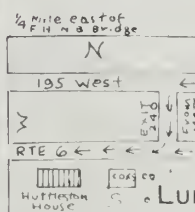 1/4 Mile east of
F H N B Bridge
N
195 West ←
W
EXIT
240
↓
RTE 6 ← ← ← ←
COXY CO
Huttleston
House
S
LU